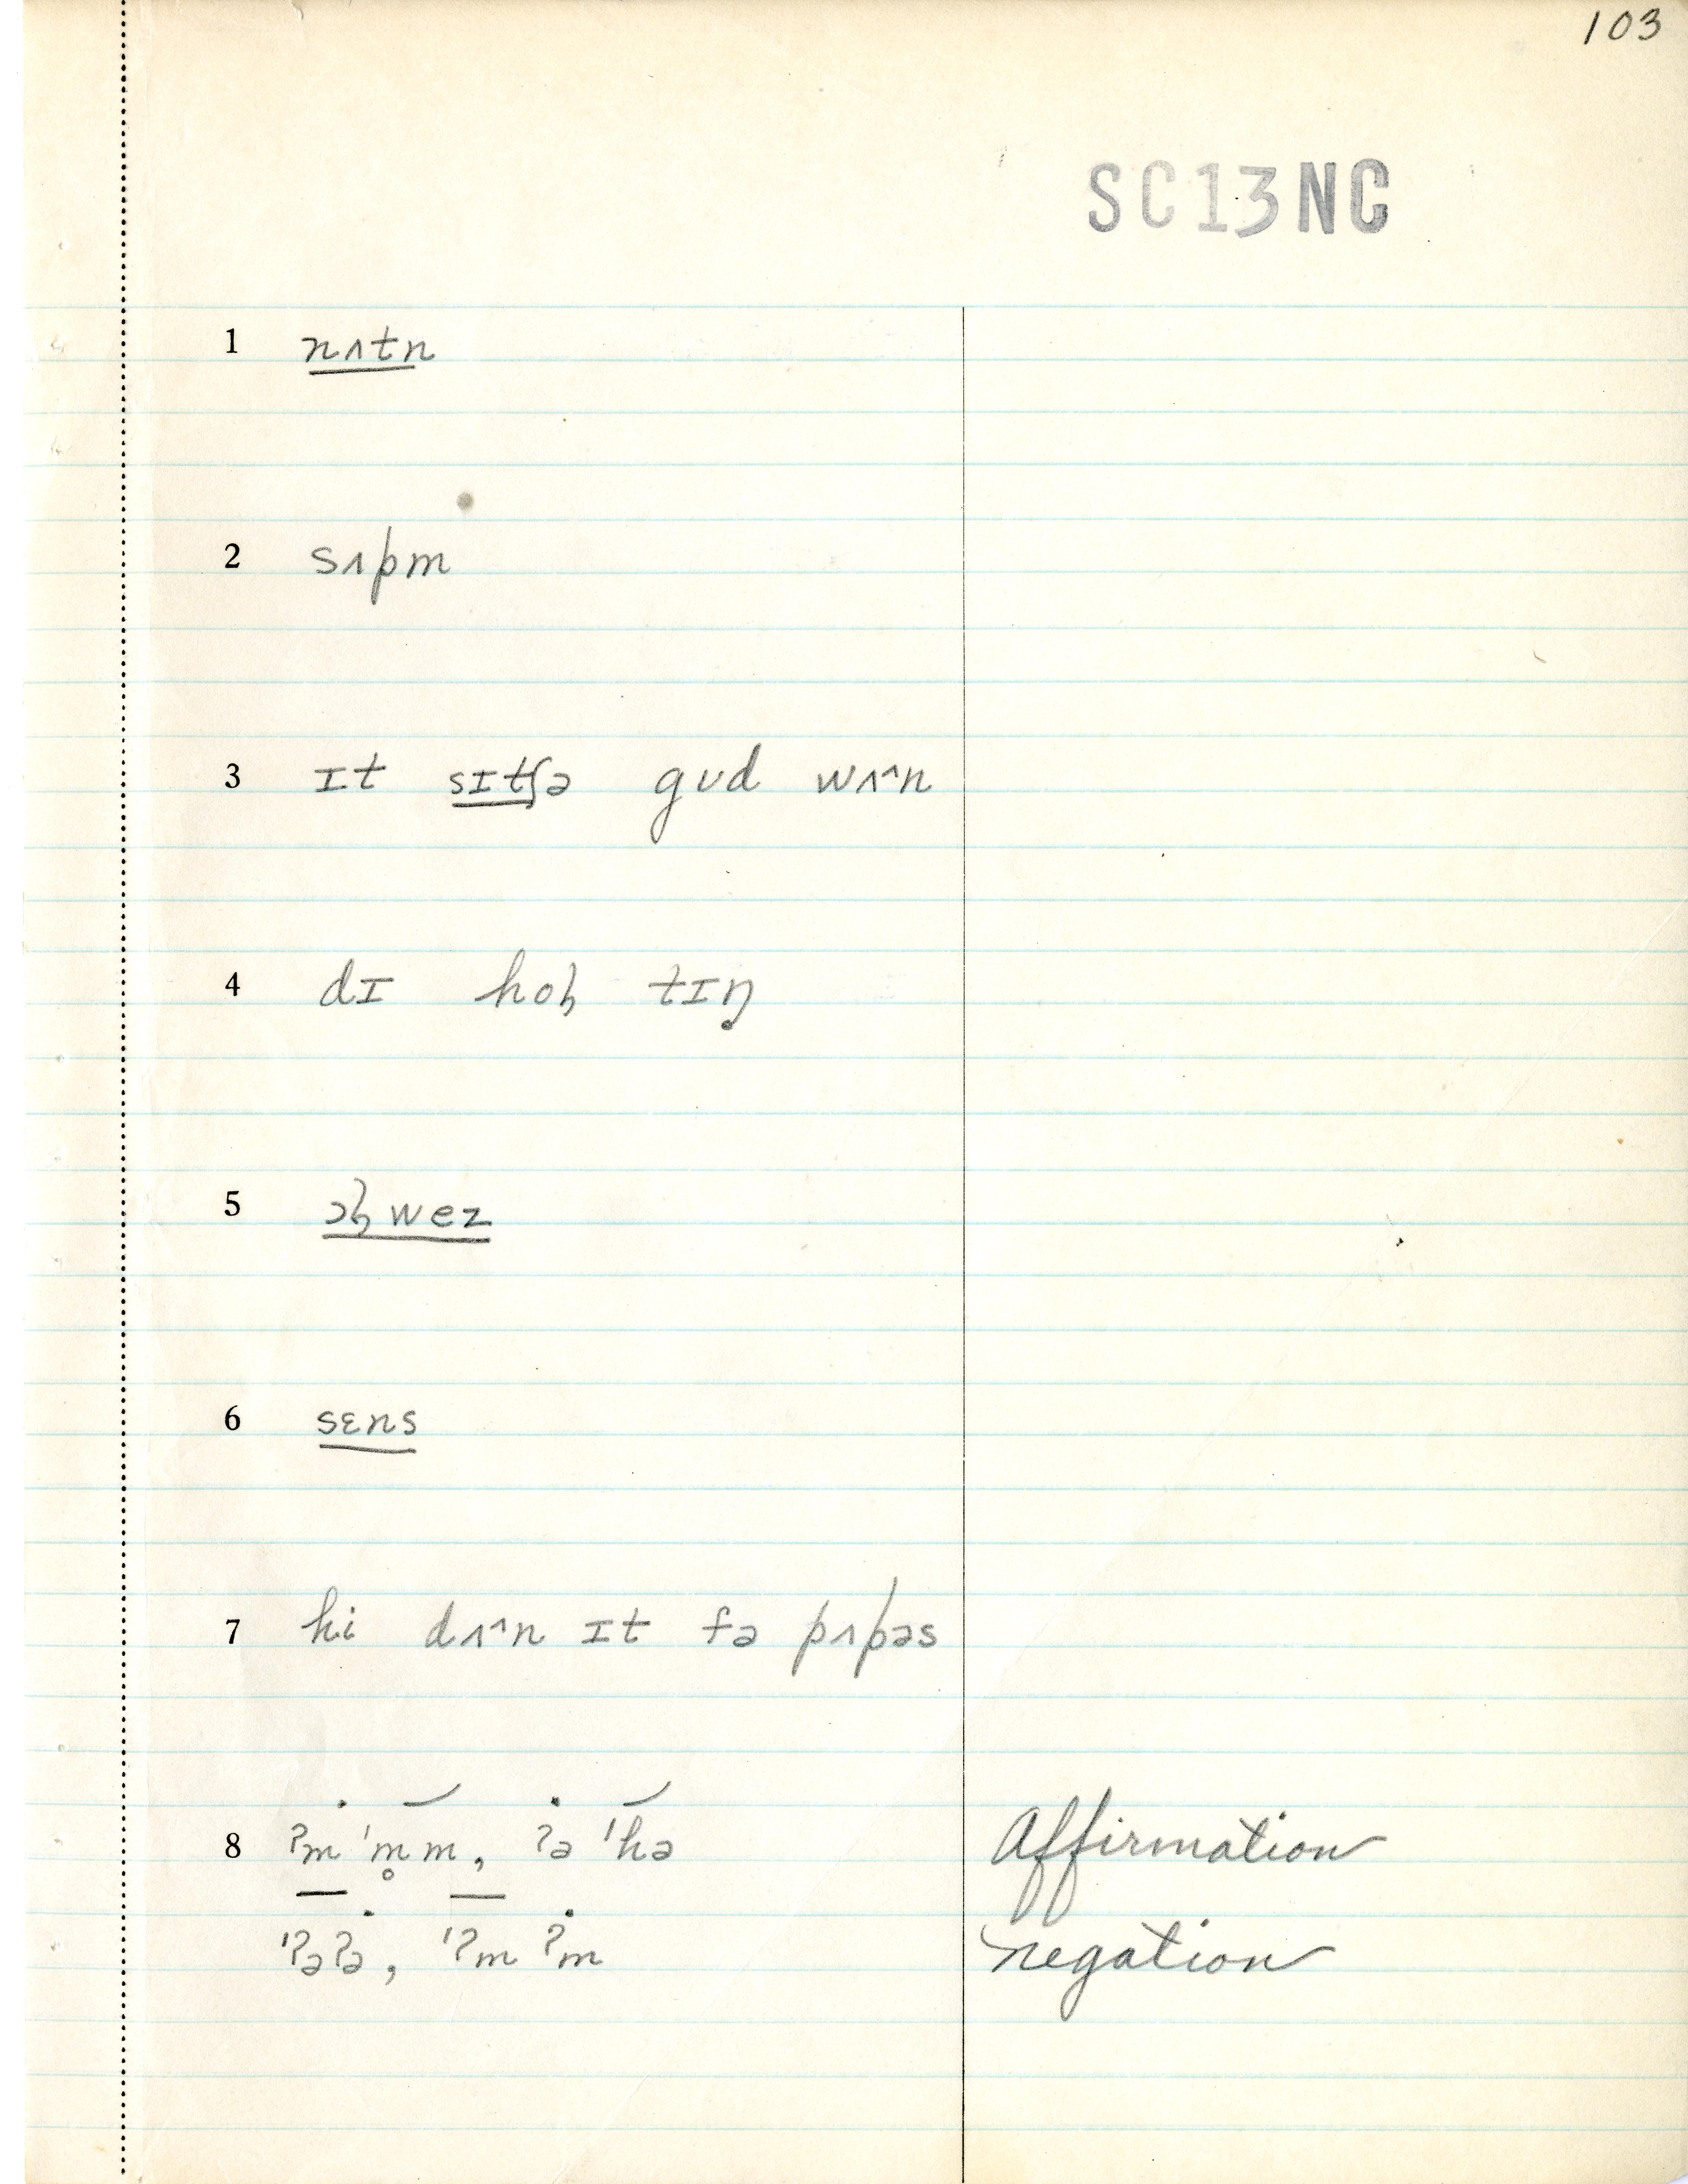 103
SC13NC
1 nʌtn
2 sʌpm
3 ɪt sɪtʃə gʊd wʌ^n
4 dɪ hoɫ tɪŋ
5 ɔɫwez
6 sɛns
7 hi dʌ^n ɪt fə pʌpəs
8 ʔm 'm̥m, ʔə 'hə Affirmation
'ʔəʔə, 'ʔm ʔm negation